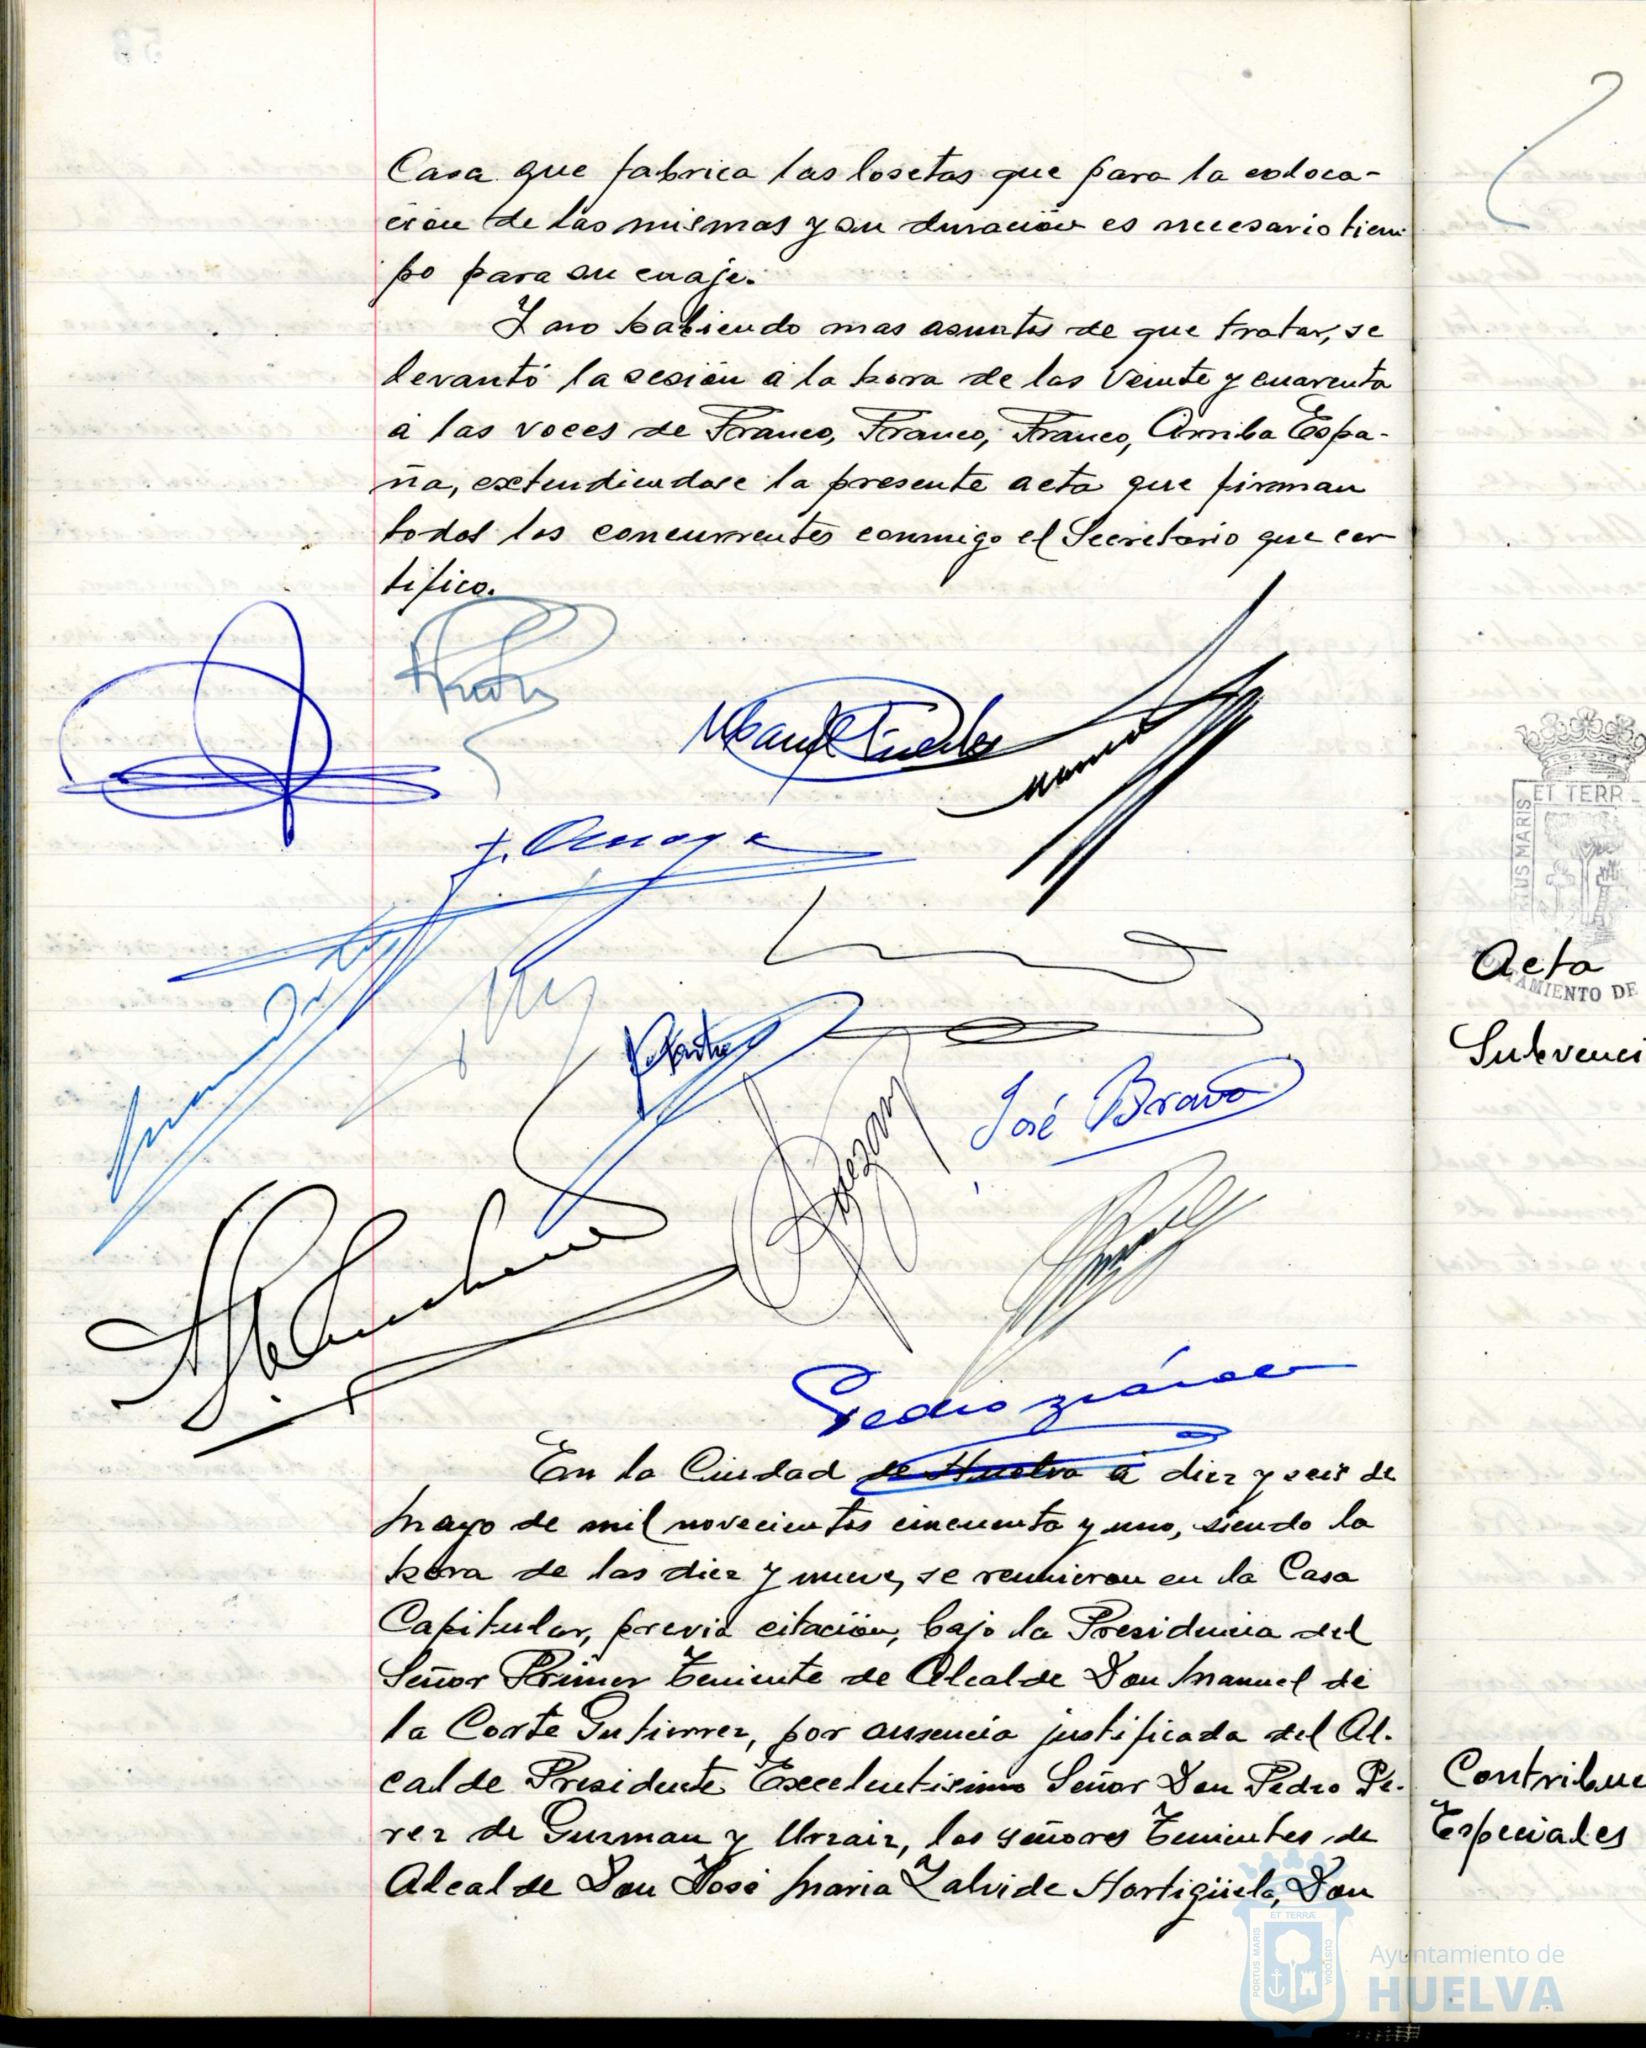 Casa que fabrica las losetas que para la coloca-
ción de las mismas y su duración es necesario tiem
po para su cuaje.
Y no habiendo mas asuntos de que tratar, se
levantó la sesión a la hora de las Veinte y cuarenta
a las voces de Franco, Franco, Franco, Arriba Espa-
ña, extendiendose la presente acta que firman
todos los concurrentes conmigo el Secretario que cer
tifico.
José Bravo
En la Ciudad de Huelva a diez y seis de
Mayo de mil novecientos cincuenta y uno, siendo la
hora de las diez y nueve, se reunieron en la Casa
Capitular, previa citación, bajo la Presidencia del
Señor Primer Teniente de Alcalde Don Manuel de
la Corte Gutierrez, por ausencia justificada del Al-
calde Presidente Excelentisimo Señor Don Pedro Pe-
rez de Guzman y Urzaiz, los señores Tenientes de
Alcalde Don José Maria Zalvide Hortigüela, Don
ET TERR
TUS MARIS
Acta
AMIENTO DE
Subvenci
Contribuc
Especiales
ET TERRÆ
PORTUS MARIS
CUSTODIA
Ayuntamiento de
HUELVA